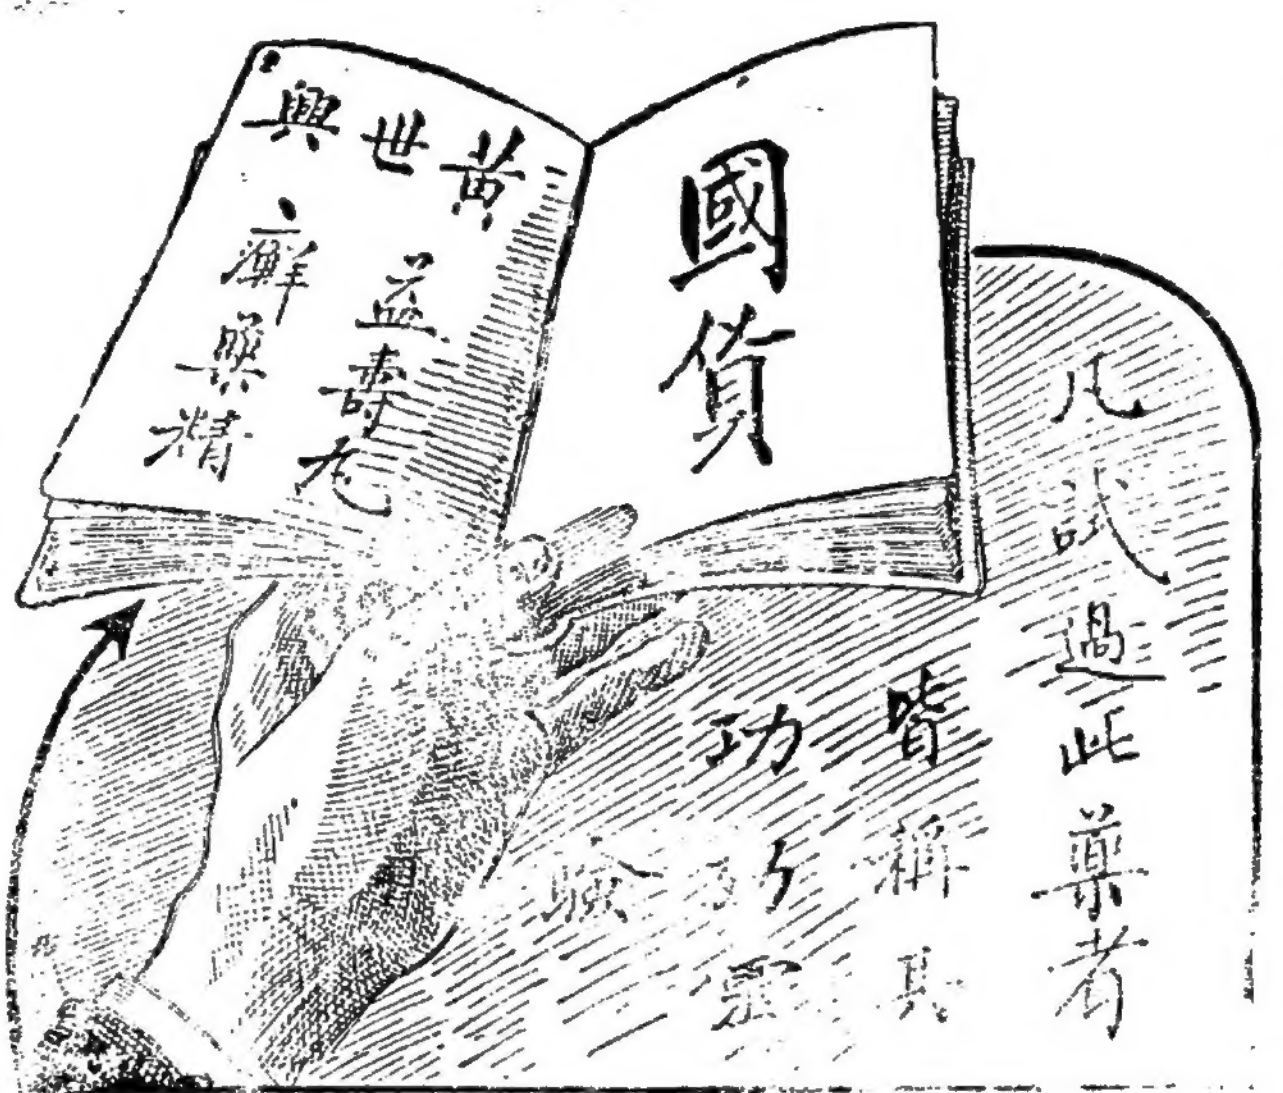 國貨
黃世興
益壽丸
癬藥精
凡試過此藥者
皆稱其
功靈
驗